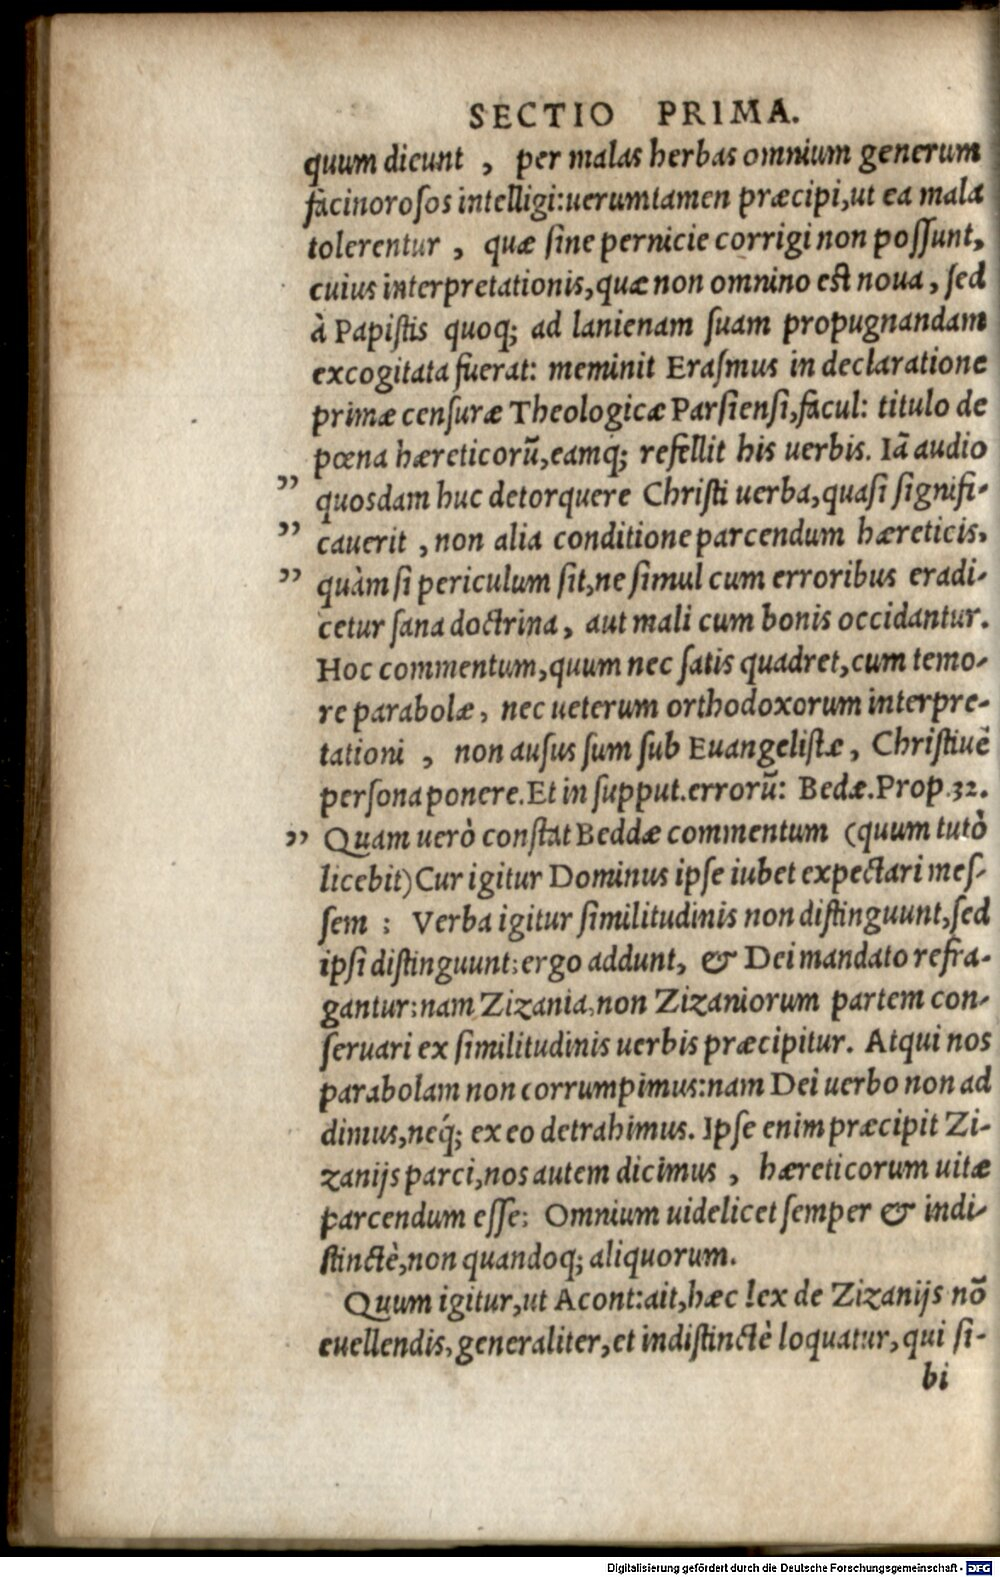 SECTIO PRIMA.
quum dicunt , per malas herbas omnium generum
facinorosos intelligi:uerumtamen præcipi,ut ea mala
tolerentur , quæ sine pernicie corrigi non possunt,
cuius interpretationis,quæ non omnino est noua, sed
à Papistis quoq; ad lanienam suam propugnandam
excogitata fuerat: meminit Erasmus in declaratione
primæ censuræ Theologicæ Parsiensi,facul: titulo de
pœna hæreticorũ,eamq; refellit his uerbis. Iã audio
„ quosdam huc detorquere Christi uerba,quasi signifi-
„ cauerit , non alia conditione parcendum hæreticis,
„ quàm si periculum sit,ne simul cum erroribus eradi-
cetur sana doctrina, aut mali cum bonis occidantur.
Hoc commentum,quum nec satis quadret,cum temo-
re parabolæ, nec ueterum orthodoxorum interpre-
tationi , non ausus sum sub Euangelistæ, Christiuẽ
persona ponere.Et inupput.errorũ: Bedæ.Prop.32.
„ Quam uerò constat Beddæ commentum (quum tutò
licebit)Cur igitur Dominus ipse iubet expectari mes-
sem : Verba igitur similitudinis non distinguunt,sed
ipsi distinguunt:ergo addunt, & Dei mandato refra-
gantur:nam Zizania,non Zizaniorum partem con-
seruari ex similitudinis uerbis præcipitur. Atqui nos
parabolam non corrumpimus:nam Dei uerbo non ad
dimus,neq́; ex eo detrahimus. Ipse enim præcipit Zi-
zanijs parci,nos autem dicimus , hæreticorum uitæ
parcendum esse: Omnium uidelicet semper & indi-
stinctè,non quandoq; aliquorum.
Quum igitur,ut Acont:ait,hæc lex de Zizanijs nõ
euellendis,generaliter,et indistinctè loquatur,qui si-
bi
Digitalisierung gefördert durch die Deutsche Forschungsgemeinschaft - DFG